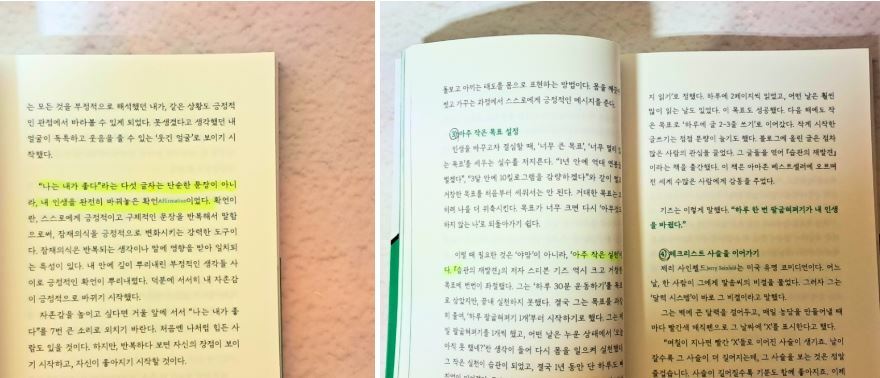 는 모든 것을 부정적으로 해석했던 내가, 같은 상황도 긍정적
인 관점에서 바라볼 수 있게 되었다. 못생겼다고 생각했던 내
얼굴이 독특하고 웃음을 줄 수 있는 '웃긴 얼굴'로 보이기 시
작했다.
"나는 내가 좋다"라는 다섯 글자는 단순한 문장이 아니
라, 내 인생을 완전히 바꿔놓은 확언Affirmation이었다. 확언이
란, 스스로에게 긍정적이고 구체적인 문장을 반복해서 말함
으로써, 잠재의식을 긍정적으로 변화시키는 강력한 도구이
다. 잠재의식은 반복되는 생각이나 말에 영향을 받아 일치되
는 특성이 있다. 내 안에 깊이 뿌리내린 부정적인 생각들 사
이로 긍정적인 확언이 뿌리내렸다. 덕분에 서서히 내 자존감
이 긍정적으로 바뀌기 시작했다.
자존감을 높이고 싶다면 거울 앞에 서서 "나는 내가 좋
다"를 7번 큰 소리로 외치기 바란다. 처음엔 나처럼 힘든 사
람도 있을 것이다. 하지만, 반복하다 보면 자신의 장점이 보이
기 시작하고, 자신이 좋아지기 시작할 것이다.
돌보고 아끼는 태도를 몸으로 표현하는 방법이다. 몸을 깨끗
씻고 가꾸는 과정에서 스스로에게 긍정적인 메시지를 준다.
③ 아주 작은 목표 설정
인생을 바꾸고자 결심할 때, '너무 큰 목표', '너무 멀리 있
는 목표'를 세우는 실수를 저지른다. "1년 안에 억대 연봉을
벌겠다", "3달 안에 10킬로그램을 감량하겠다"와 같이 말
거창한 목표를 처음부터 세워서는 안 된다. 거대한 목표는 오
히려 나를 더 위축시킨다. 목표가 너무 크면 다시 '아무것도
하지 않는 나'로 되돌아가기 쉽다.
이럴 때 필요한 것은 '야망'이 아니라, '아주 작은 실천'이
다. 『습관의 재발견』의 저자 스티븐 기즈 역시 크고 거창한
목표에 번번이 좌절했다. 그는 '하루 30분 운동하기'를 목표
로 삼았지만, 끝내 실천하지 못했다. 결국 그는 목표를 과감
히 줄여, '하루 팔굽혀펴기 1개'부터 시작하기로 했다. 그는 매
일 팔굽혀펴기를 1개씩 했고, 어떤 날은 누운 상태에서 '오늘
아직 못 했네?'란 생각이 들어 다시 몸을 일으켜 실천했다.
그 작은 실천이 습관이 되었고, 결국 1년 동안 단 하루도 빠
지 읽기'로 정했다. 하루에 2페이지씩 읽었고, 어떤 날은 훨씬
많이 읽는 날도 있었다. 이 목표도 성공했다. 다음 해에도 작
은 목표로 '하루에 글 2-3줄 쓰기'로 이어갔다. 작게 시작한
글쓰기는 점점 분량이 늘기도 했다. 블로그에 올린 글은 점차
많은 사람의 관심을 끌었다. 그 글들을 엮어 『습관의 재발견』
이라는 책을 출간했다. 이 책은 아마존 베스트셀러에 오르며
전 세계 수많은 사람에게 감동을 주었다.
기즈는 이렇게 말했다. "하루 한 번 팔굽혀펴기가 내 인생
을 바꿨다."
④ 체크리스트 사슬을 이어가기
제리 사인펠드Jerry Seinfeld는 미국 유명 코미디언이다. 어느
날, 한 사람이 그에게 말솜씨의 비결을 물었다. 그러자 그는
'달력 시스템'이 바로 그 비결이라고 말했다.
그는 벽에 큰 달력을 걸어두고, 매일 농담을 만들어낼 때
마다 빨간색 매직펜으로 그 날짜에 'X'를 표시한다고 했다.
"며칠이 지나면 빨간 'X'들로 이어진 사슬이 생기죠. 날이
갈수록 그 사슬이 더 길어지는데, 그 사슬을 보는 것은 정말
즐겁습니다. 사슬이 길어질수록 기분도 함께 좋아지죠. 이제